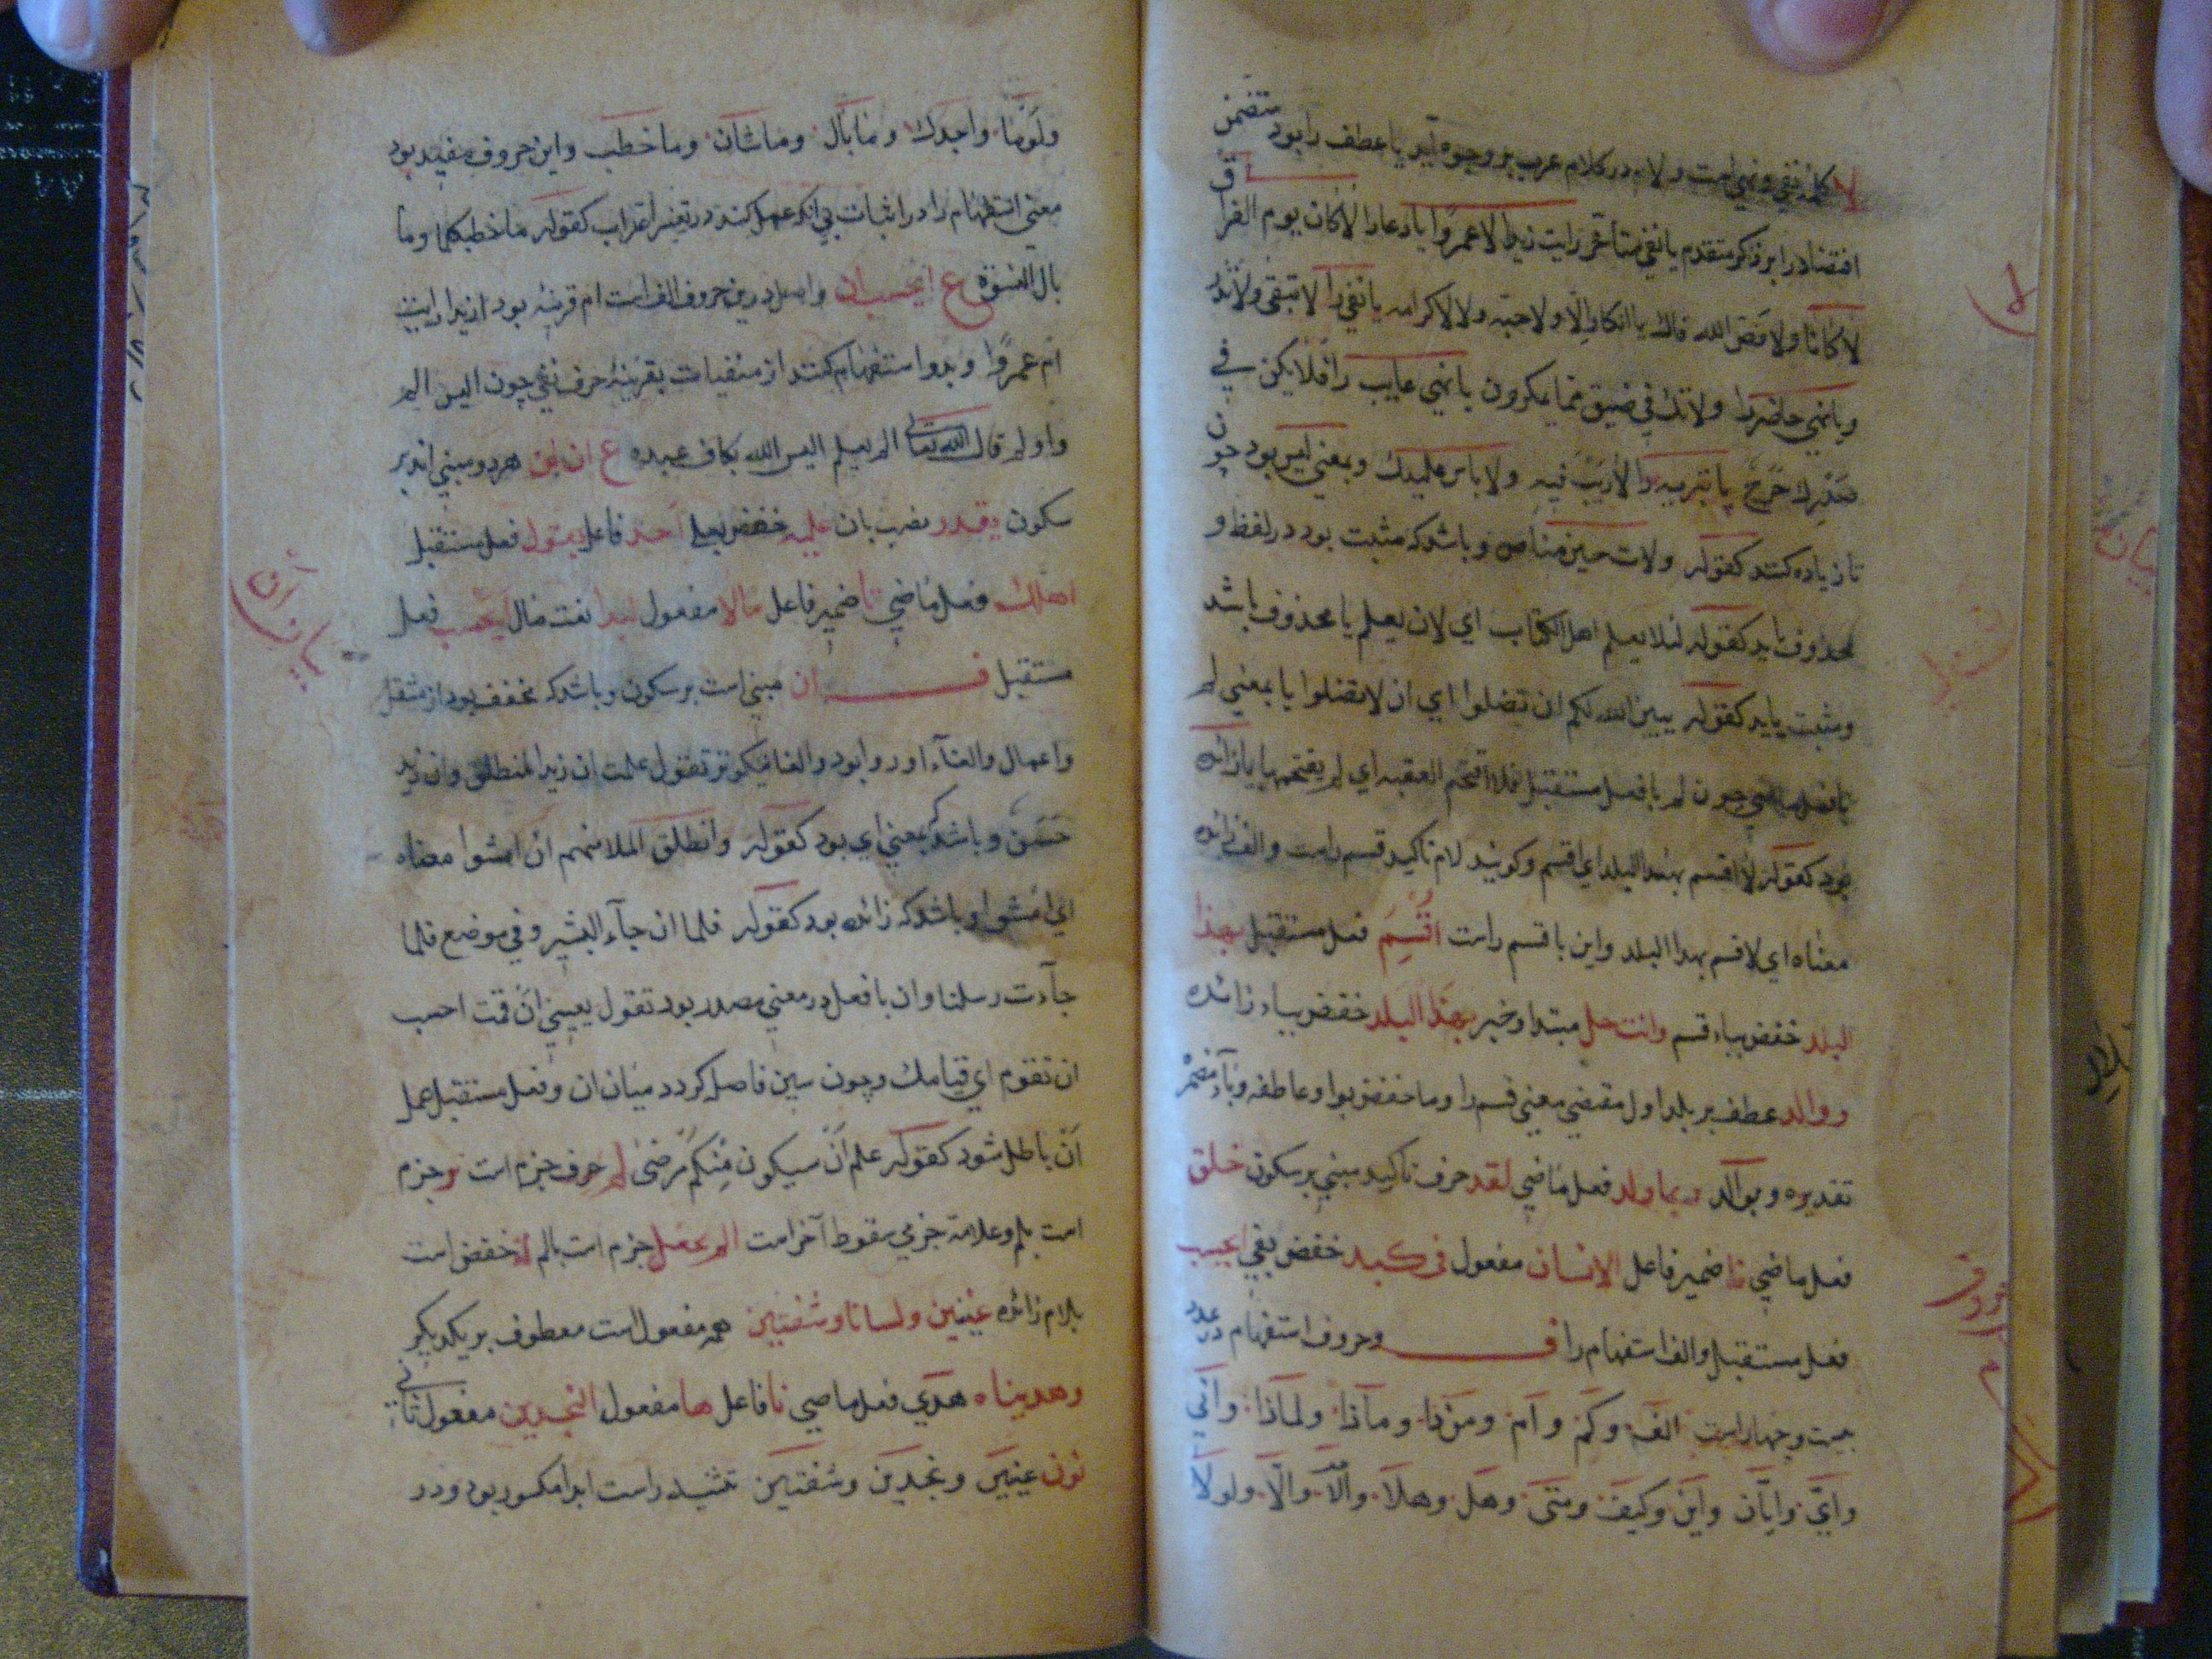 لا كلمه نفي ونهي است ولاء در كلام عرب بر وجوه آيد يا عطف را بود متضمن
افتضادرا بر ذكر متقدم يا نفي متأخر رايت زيدا لا عمروا يا دعا را لا كان يوم الفراق
لا كانا ولا فض الله فاك يا انكار لا ولا حبه ولا لا كرامه يا نفي را لا تبقى ولا تذر
ويا نهي حاضر را ولا تك في ضيق مما يمكرون يا نهي غايب را فلا يكن في
صدرك حرج يا تبريه را لا ريب فيه ولا باس عليك وبمعني ليس بود چون
تا زياده كنند كقوله ولات حين مناص وباشد كه مثبت بود در لفظ و
محذوف بايد كقوله لئلا يعلم اهل الكتاب اي لان يعلم يا محذوف باشد
ومثبت بايد كقوله يبين الله لكم ان تضلوا اي ان لا تضلوا يا بمعني لم
با فعل ماضي چون لم با فعل مستقبل فلا اقتحم العقبه اي لم يقتحمها يا زائده
بود كقوله لا اقسم بهذا البلد اي اقسم وكويند لام تاكيد قسم راست والف زائده
معناه اي لاقسم بهذا البلد واين با قسم راست اقسم فعل مستقبل بهذا
البلد خفض بباء قسم وانت حل مبتدا وخبر بهذا البلد خفض بباء زائده
ووالد عطف بر بلد اول مقتضي معني قسم را وما خفض بواو عاطفه وباء مضمر
تقديره وبوالد وبما ولد فعل ماضي لقد حرف تاكيد مبني بر سكون خلق
فعل ماضي نا ضمير فاعل الانسان مفعول في كبد خفض بفي ايحسب
فعل مستقبل والف استفهام را ف وحروف استفهام در عدد
بيست وچهار است الف وكم وام ومن ذا وماذا ولماذا واني
واي وايان واين وكيف ومتى وهل وهلا والا والا ولولا
ولوما واجدك وما بال وما شان وما خطب واين حروف مفيد بود
معني استفهام را در اثبات بي انكه عمل كند در تغيير اعراب كقوله ما خطبكما وما
بال النسوة ع ايحسب ان واصل درين حروف الف است ام قرينه بود ازيدا رايت
ام عمروا وبدو استفهام كنند از منفيات بقرينه حرف نفي چون اليس الم
واولم قال الله تعالى الم يعلم اليس الله بكاف عبده ع ان لن هر دو مبني اند بر
سكون يقدر نصب بان عليه خفض بعلي احد فاعل يقول فعل مستقبل
اهلك فعل ماضي تا ضمير فاعل مالا مفعول لبدا نعت مال ايحسب فعل
مستقبل ف ان مبني است بر سكون وباشد كه مخفف بود از مثقل
واعمال والغآء او روا بود والغا نيكوتر تقول علمت ان زيدا لمنطلق وان زيد
حسن وباشد كه بمعني اي بود كقوله وانطلق الملا منهم ان امشوا معناه
اي امشوا وباشد كه زائده بود كقوله فلما ان جآء البشير وفي موضع فلما
جآءت رسلنا وان با فعل در معني مصدر بود تقول يعجبني ان قمت احب
ان تقوم اي قيامك وچون سين فاصل كردد ميان ان وفعل مستقبل عمل
ان باطل شود كقوله علم ان سيكون منكم مرضى لم حرف جزم است يره جزم
است بلم وعلامة جزمي سقوط آخر است الم نجعل جزم است بالم له خفض است
بلام زائده عينين ولسانا وشفتين همه مفعول است معطوف بر يكديكر
وهديناه هدي فعل ماضي نا فاعل ها مفعول النجدين مفعول ثاني
نون عينين ونجدين وشفتين تثنيه راست ابدا مكسور بود ودر